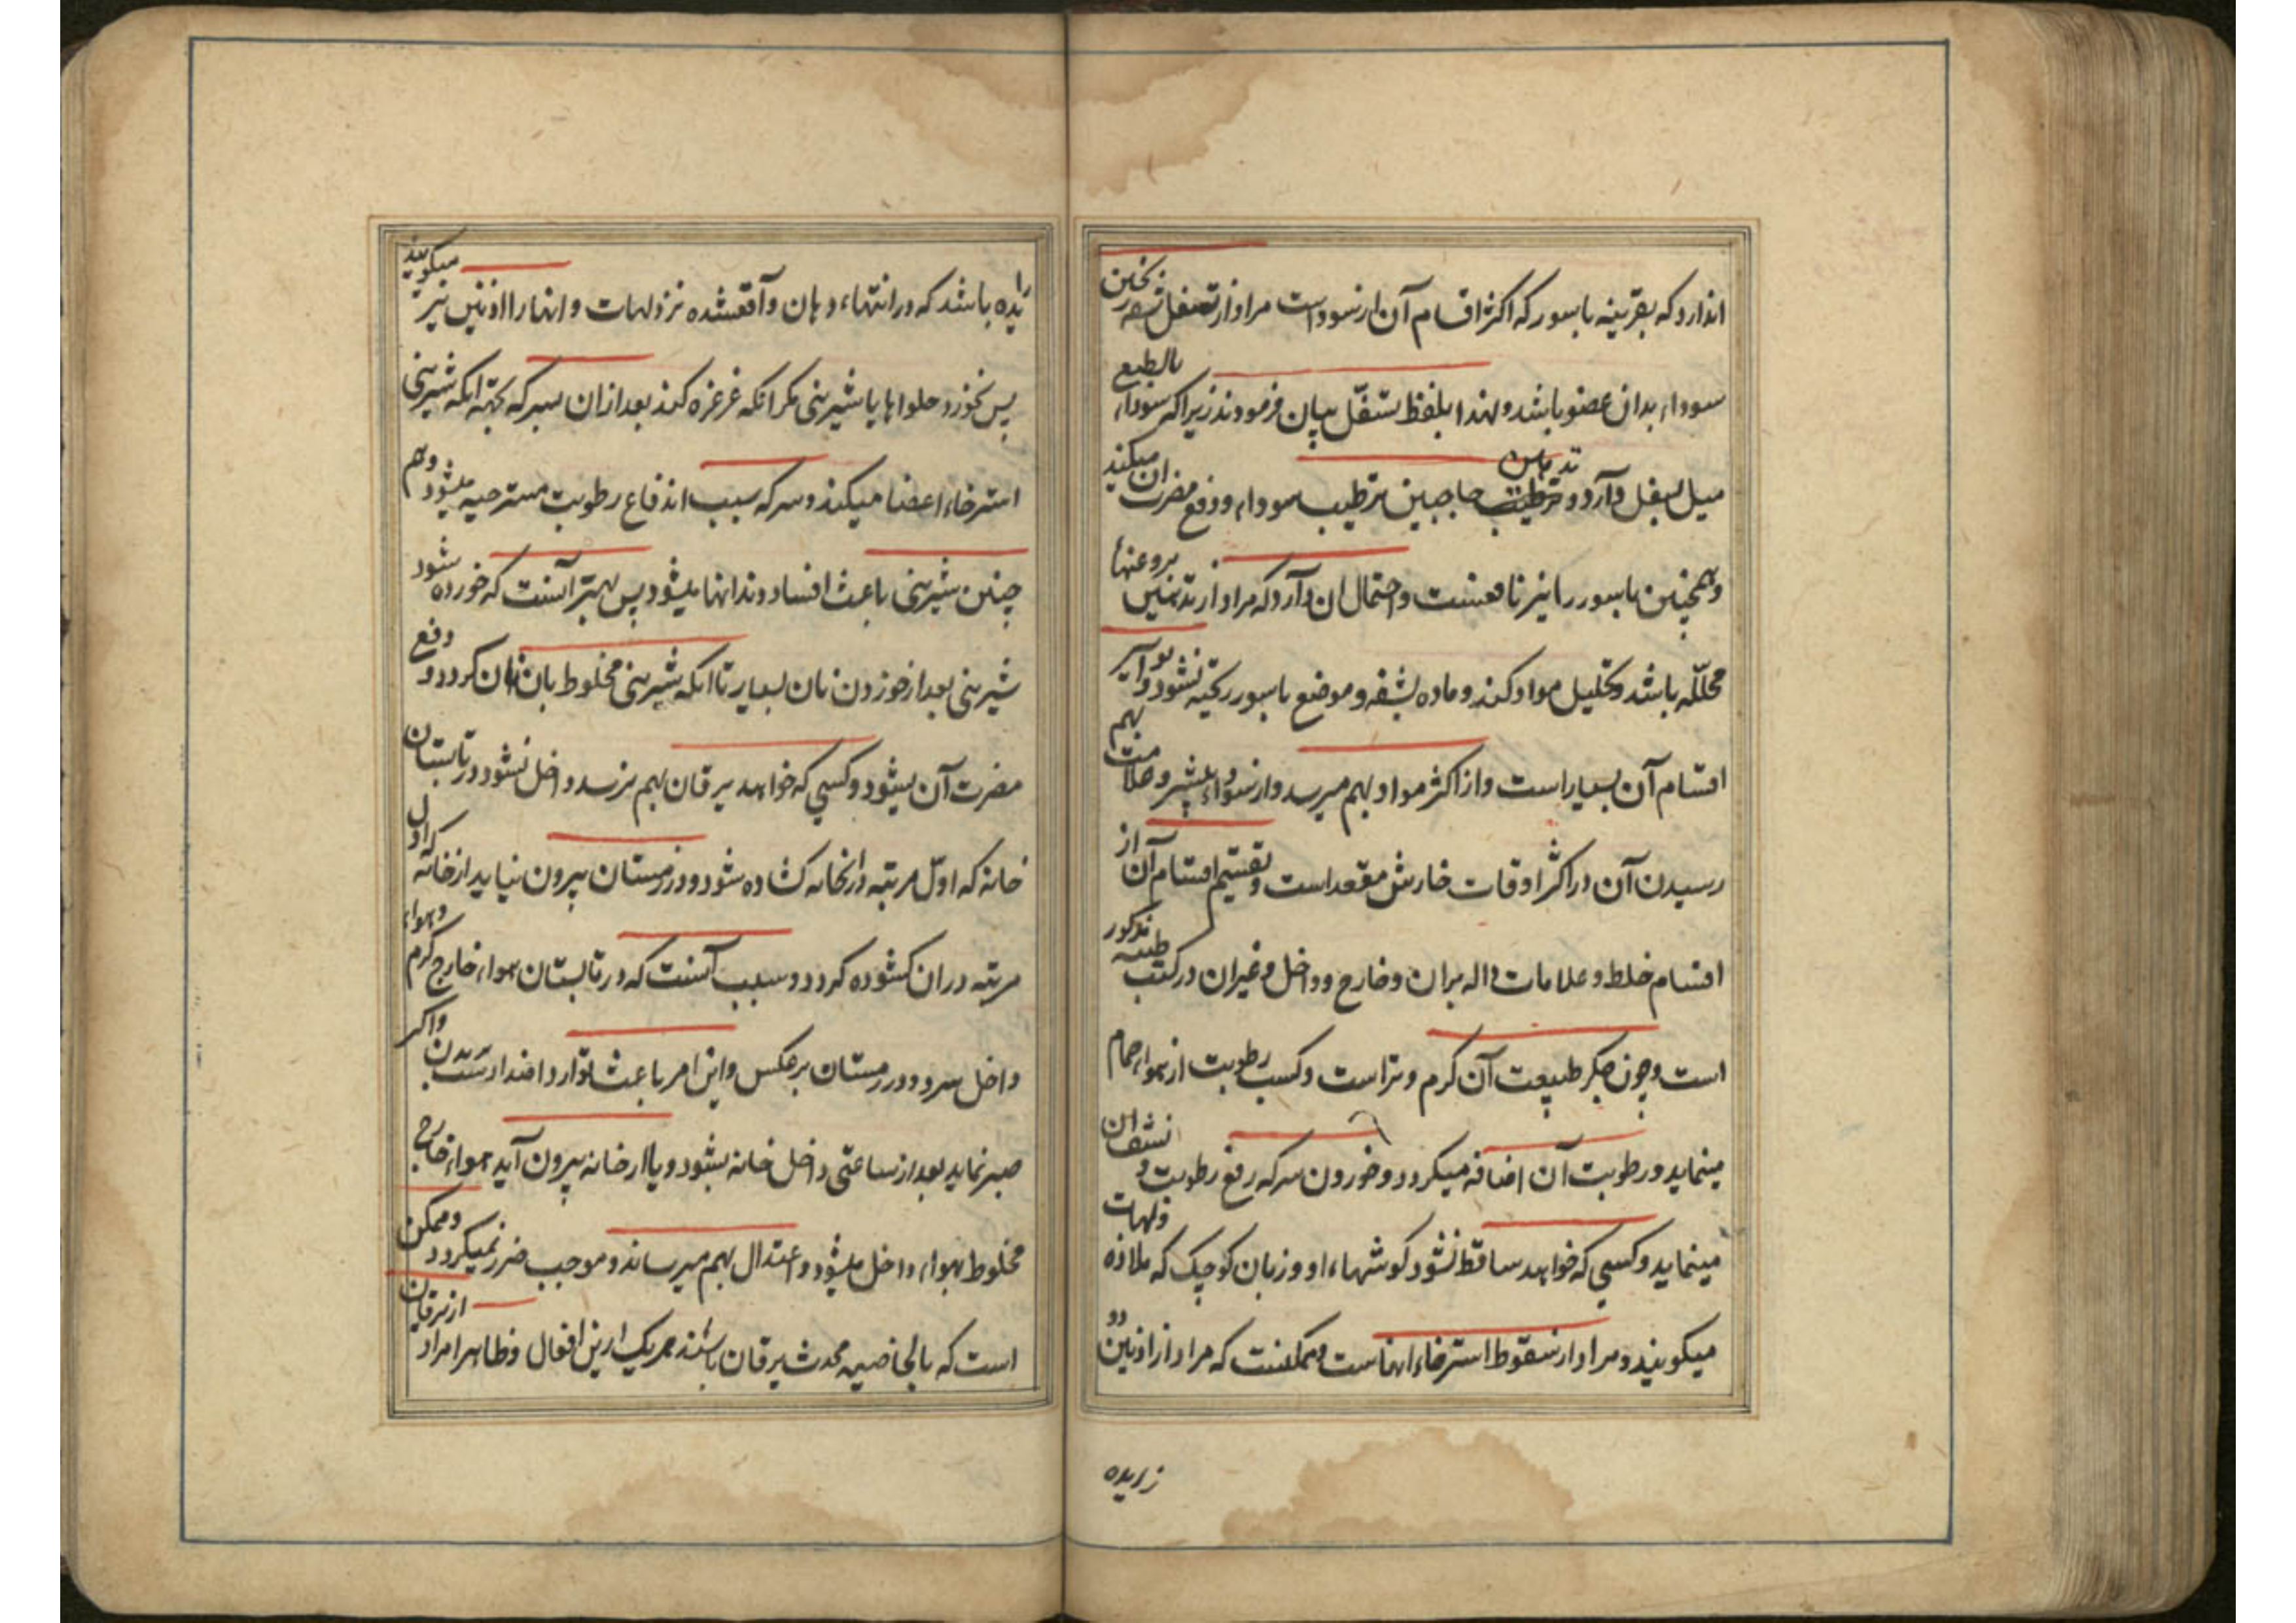 اندارد که بقرینه باسور که اکثر اقسام آن از سوداست مراد از تسفل شعر نختن
سوداء بدان عضو باشد و لهذا بلفظ تسفّل بیان فرمودند زیرا که سوداء بالطبع
میل بسفل دارد و تدهین حاجبین ترطیب سوداء و دفع مضرت ان میکند
و همچنین باسور را نیز نافعست و احتمال ان دارد که مراد از تدهین بروغنهاء
محلّله باشد و تحلیل مواد کند و ماده بشفه و موضع باسور ریخته نشود و بواسیر
اقسام آن بسیار است و از اکثر مواد بهم میرسد و از سوداء بیشتر و علامت بهم
رسیدن آن در اکثر اوقات خارش مقعد است و تقسیم اقسام آن از
اقسام خلط و علامات داله بران و خارج و داخل و غیران در کتب طبیه مذکور
است و چون جگر طبیعت آن گرم و تر است و کسب رطوبت از هواء حمام
مینماید و رطوبت آن اضافه میگردد و خوردن سرکه رفع رطوبت و نشف ان
مینماید و کسی که خواهد ساقط نشود گوشهاء او و زبان کوچک که ملازه و لهات
میگویند و مراد از سقوط استرخاء انهاست و ممکنست که مراد از اذنین دو
زایده
یده باشد که در انتهاء دهان واقعشده نزد لهات و انها را اذنین نیز میگویند
پس نخورد حلواها یا شیرینی مگر انکه غرغره کند بعد ازان بسرکه بجهة انکه شیرینی
استرخاء اعضا میکند و سرکه سبب اندفاع رطوبت مسترخیه میشود و هم
چنین شیرینی باعث افساد دندانها میشود پس بهتر آنست که خورده شود
شیرینی بعد از خوردن نان بسیار تا انکه شیرینی مخلوط بان نان گردد و دفع
مضرت آن بشود و کسی که خواهد یرقان بهم نرسد داخل نشود در تابستان
خانه که اوّل مرتبه در انخانه گشاده شود و در زمستان بیرون نیاید از خانه که اول
مرتبه در ان گشوده گردد و سبب آنست که در تابستان هواء خارج گرم و هواء
داخل سرد و در زمستان بر عکس و این امر باعث توارد اضداد است و اگر
صبر نماید بعد از ساعتی داخل خانه بشود و یا از خانه بیرون آید هواء خارج
مخلوط بهواء داخل میشود و اعتدال بهم میرساند و موجب ضرر نمیگردد و ممکن
است که بالخاصیه محدث یرقان باشند هر یک از این افعال و ظاهرا مراد از یرقان